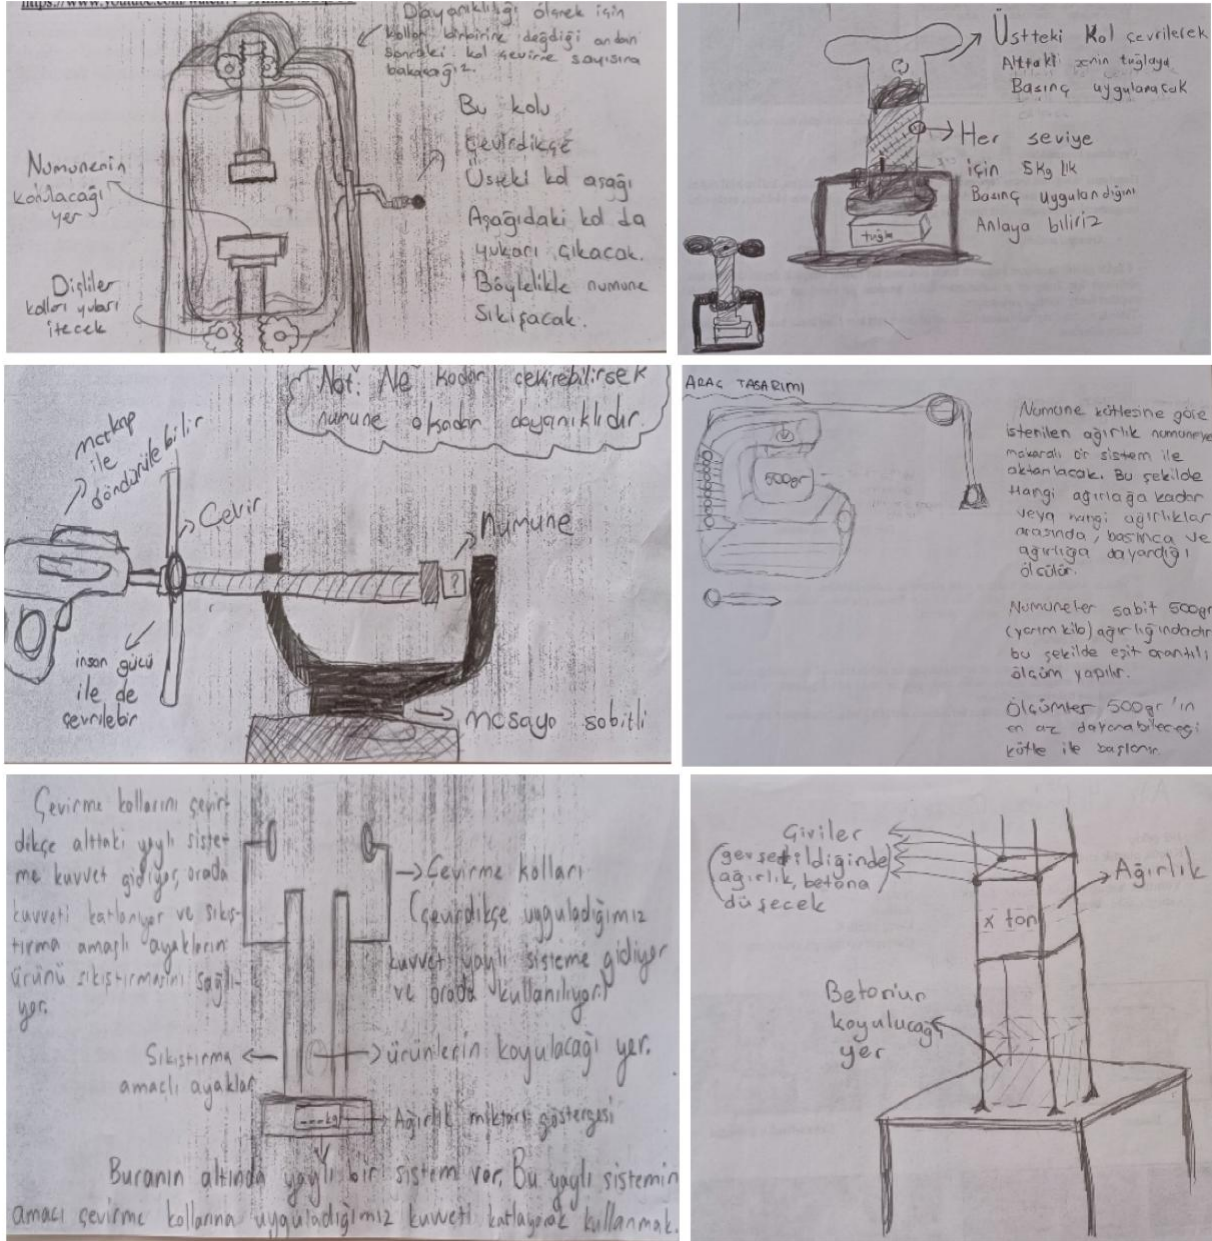 Dayanıklılığı ölçmek için
kollar birbirine değdiği andan
sonraki kol çevirme sayısına
bakacağız.
Bu kolu
çevirdikçe
Üsteki kol aşağı
Aşağıdaki kol da
yukarı çıkacak.
Böylelikle numune
Sıkışacak.
Numunenin
konulacağı
yer
Dişliler
kolları yukarı
itecek
Üstteki Kol çevrilerek
Alttaki zemin tuğlaya
Basınç uygulanacak
Her seviye
için 5Kg lık
Basınç uygulandığını
Anlaya biliriz
tuğla
Not: Ne kadar çekirebilirsek
numune okadar dayanıklıdır.
matkap
ile
döndürülebilir
Çevir
Numune
?
insan gücü
ile de
çevrilebir
masaya sabitli
ARAÇ TASARIMI
500gr
Numune kütlesine göre
istenilen ağırlık numuneye
makaralı bir sistem ile
aktarılacak. Bu şekilde
Hangi ağırlağa kadar
veya hangi ağırlıklar
arasında, basınca ve
ağırlığa dayandığı
ölçülür.
Numuneler sabit 500gr
(yarım kilo) ağırlığındadır
bu şekilde eşit orantılı
ölçüm yapılır.
Ölçümler 500gr'ın
en az dayanabileceği
kütle ile başlanır.
Çevirme kollarını çevir-
dikçe alttaki yaylı siste-
me kuvvet gidiyor, orada
kuvveti katlanıyor ve sıkış-
tırma amaçlı ayakların
ürünü sıkıştırmasını sağlı-
yor.
Çevirme kolları
(çevirdikçe uyguladığımız
kuvvet yaylı sisteme gidiyor
ve orada kullanılıyor.)
Sıkıştırma
amaçlı ayaklar
ürünlerin koyulacağı yer.
---kg
Ağırlık miktarı göstergesi
Buranın altında yaylı bir sistem var. Bu yaylı sistemin
amacı çevirme kollarına uyguladığımız kuvveti katlayarak kullanmak.
Çiviler
(gevşetildiğinde
ağırlık, betona
düşecek)
Ağırlık
x ton
Betonun
koyulucağı
yer